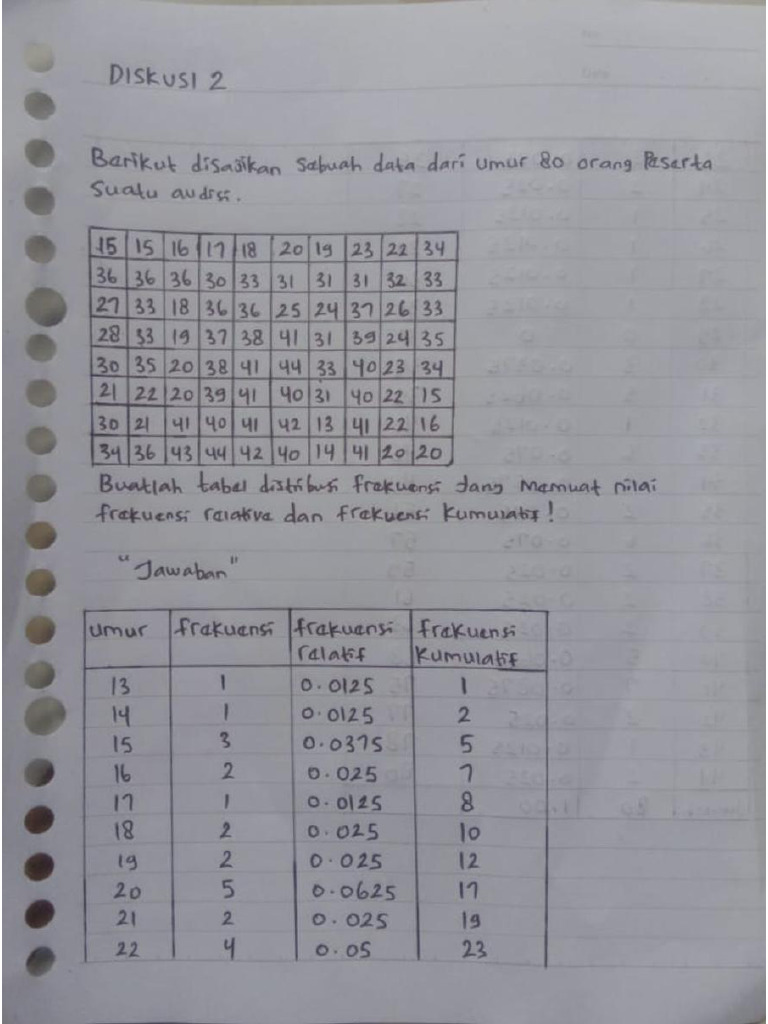 DISKUSI 2
Berikut disajikan sebuah data dari umur 80 orang Peserta
Suatu audisi.
15 15 16 17 18 20 19 23 22 34
36 36 36 30 33 31 31 31 32 33
27 33 18 36 36 25 24 37 26 33
28 33 19 37 38 41 31 39 24 35
30 35 20 38 41 44 33 40 23 34
21 22 20 39 41 40 31 40 22 15
30 21 41 40 41 42 13 41 22 16
34 36 43 44 42 40 14 41 20 20
Buatlah tabel distribusi frekuensi yang memuat nilai
frekuensi relative dan frekuensi kumulatif!
"Jawaban"
umur frekuensi frekuensi relatif frekuensi kumulatif
13 1 0.0125 1
14 1 0.0125 2
15 3 0.0375 5
16 2 0.025 7
17 1 0.0125 8
18 2 0.025 10
19 2 0.025 12
20 5 0.0625 17
21 2 0.025 19
22 4 0.05 23